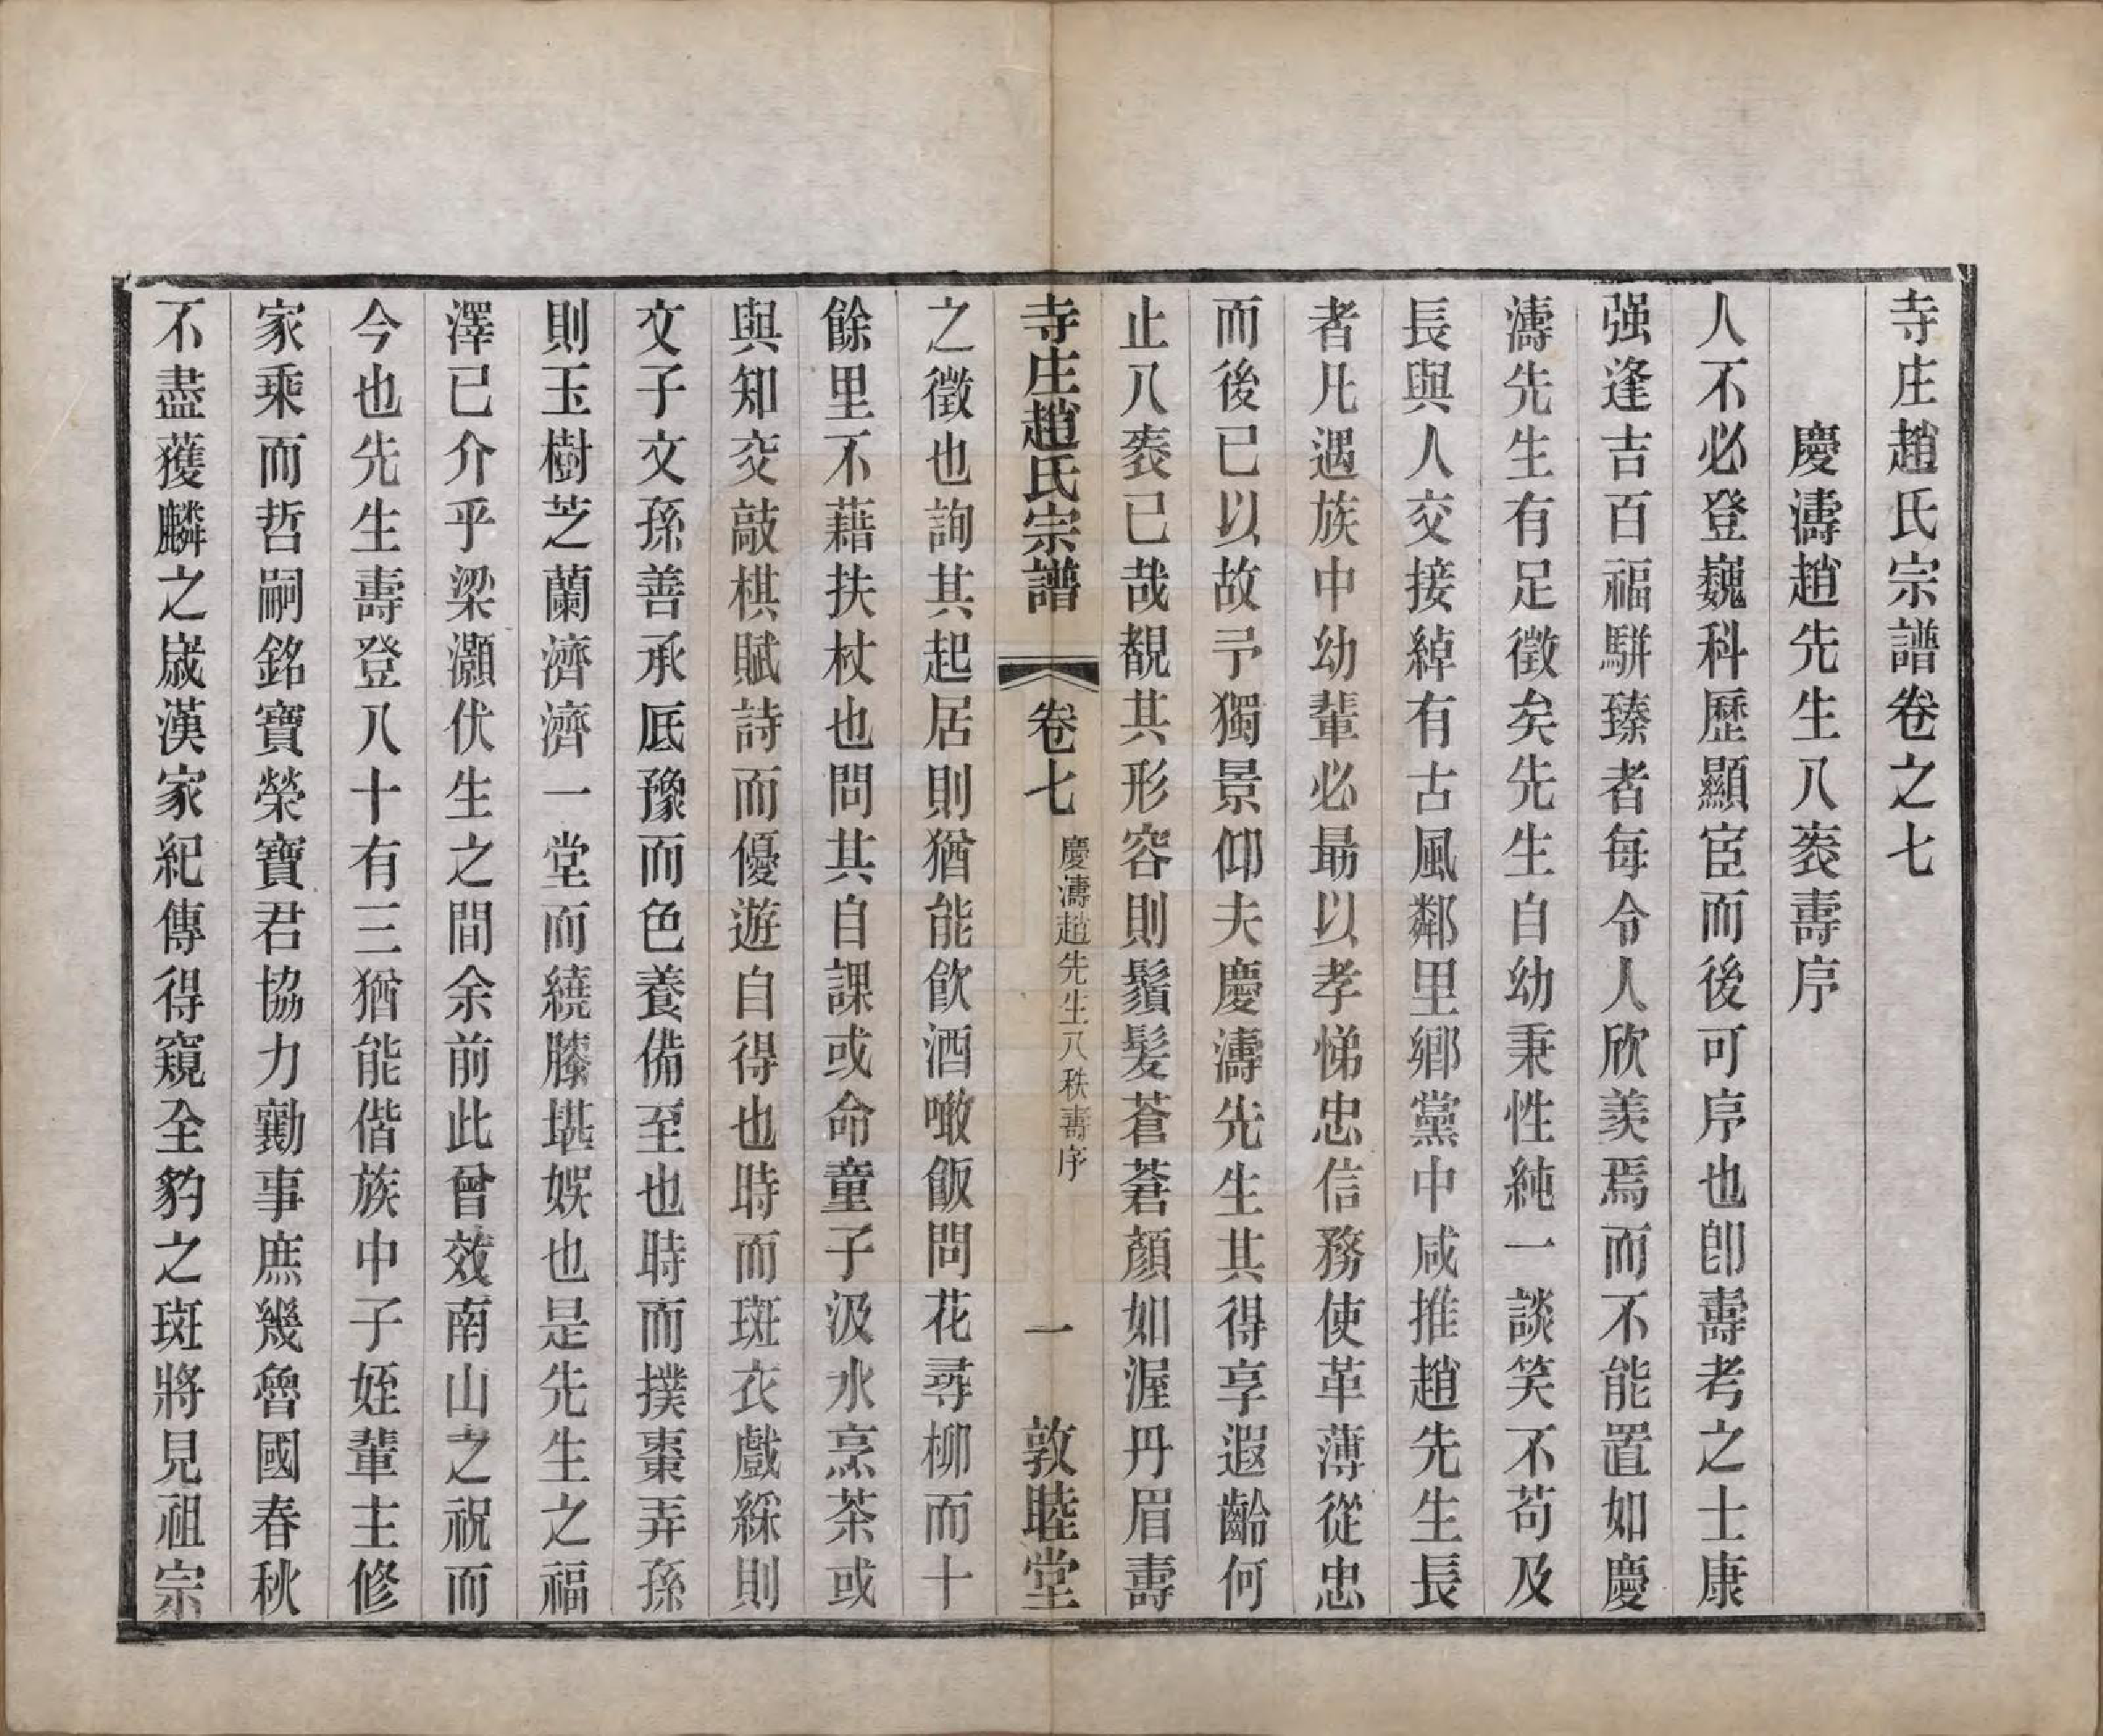 寺庄趙氏宗譜卷之七
慶濤趙先生八袠壽序
人不必登巍科歷顯宦而後可序也卽壽考之士康
强逢吉百福駢臻者每令人欣羨焉而不能置如慶
濤先生有足徵矣先生自幼秉性純一談笑不苟及
長與人交接綽有古風鄰里鄉黨中咸推趙先生長
者凡遇族中幼輩必勗以孝悌忠信務使革薄從忠
而後已以故予獨景仰夫慶濤先生其得享遐齡何
止八袠已哉覩其形容則鬚髮蒼蒼顏如渥丹眉壽
寺庄趙氏宗譜 卷七 慶濤趙先生八秩壽序 一 敦睦堂
之徵也詢其起居則猶能飮酒噉飯問花尋柳而十
餘里不藉扶杖也問其自課或命童子汲水烹茶或
與知交敲棋賦詩而優遊自得也時而斑衣戲綵則
文子文孫善承底豫而色養備至也時而撲棗弄孫
則玉樹芝蘭濟濟一堂而繞膝堪娛也是先生之福
澤已介乎梁灝伏生之間余前此曾效南山之祝而
今也先生壽登八十有三猶能偕族中子姪輩主修
家乘而哲嗣銘寶榮寶君協力勷事庶幾魯國春秋
不盡獲麟之嵗漢家紀傳得窺全豹之斑將見祖宗